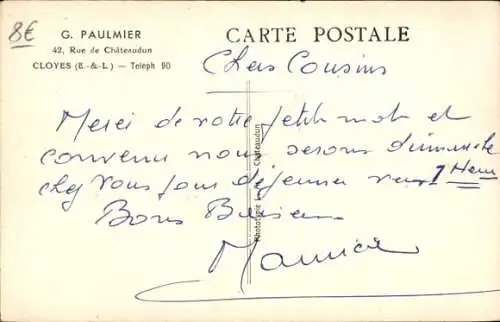 8€
G. PAULMIER
42, Rue de Châteaudun
CLOYES (E.-&-L.) — Téléph 90
CARTE POSTALE
Chers Cousins
Merci de votre petit mot et
convenu nous serons dimanche
chez vous pour déjeuner vers 1 Heure
Bons Baisers
Maurice
Phototypie Châteaudun